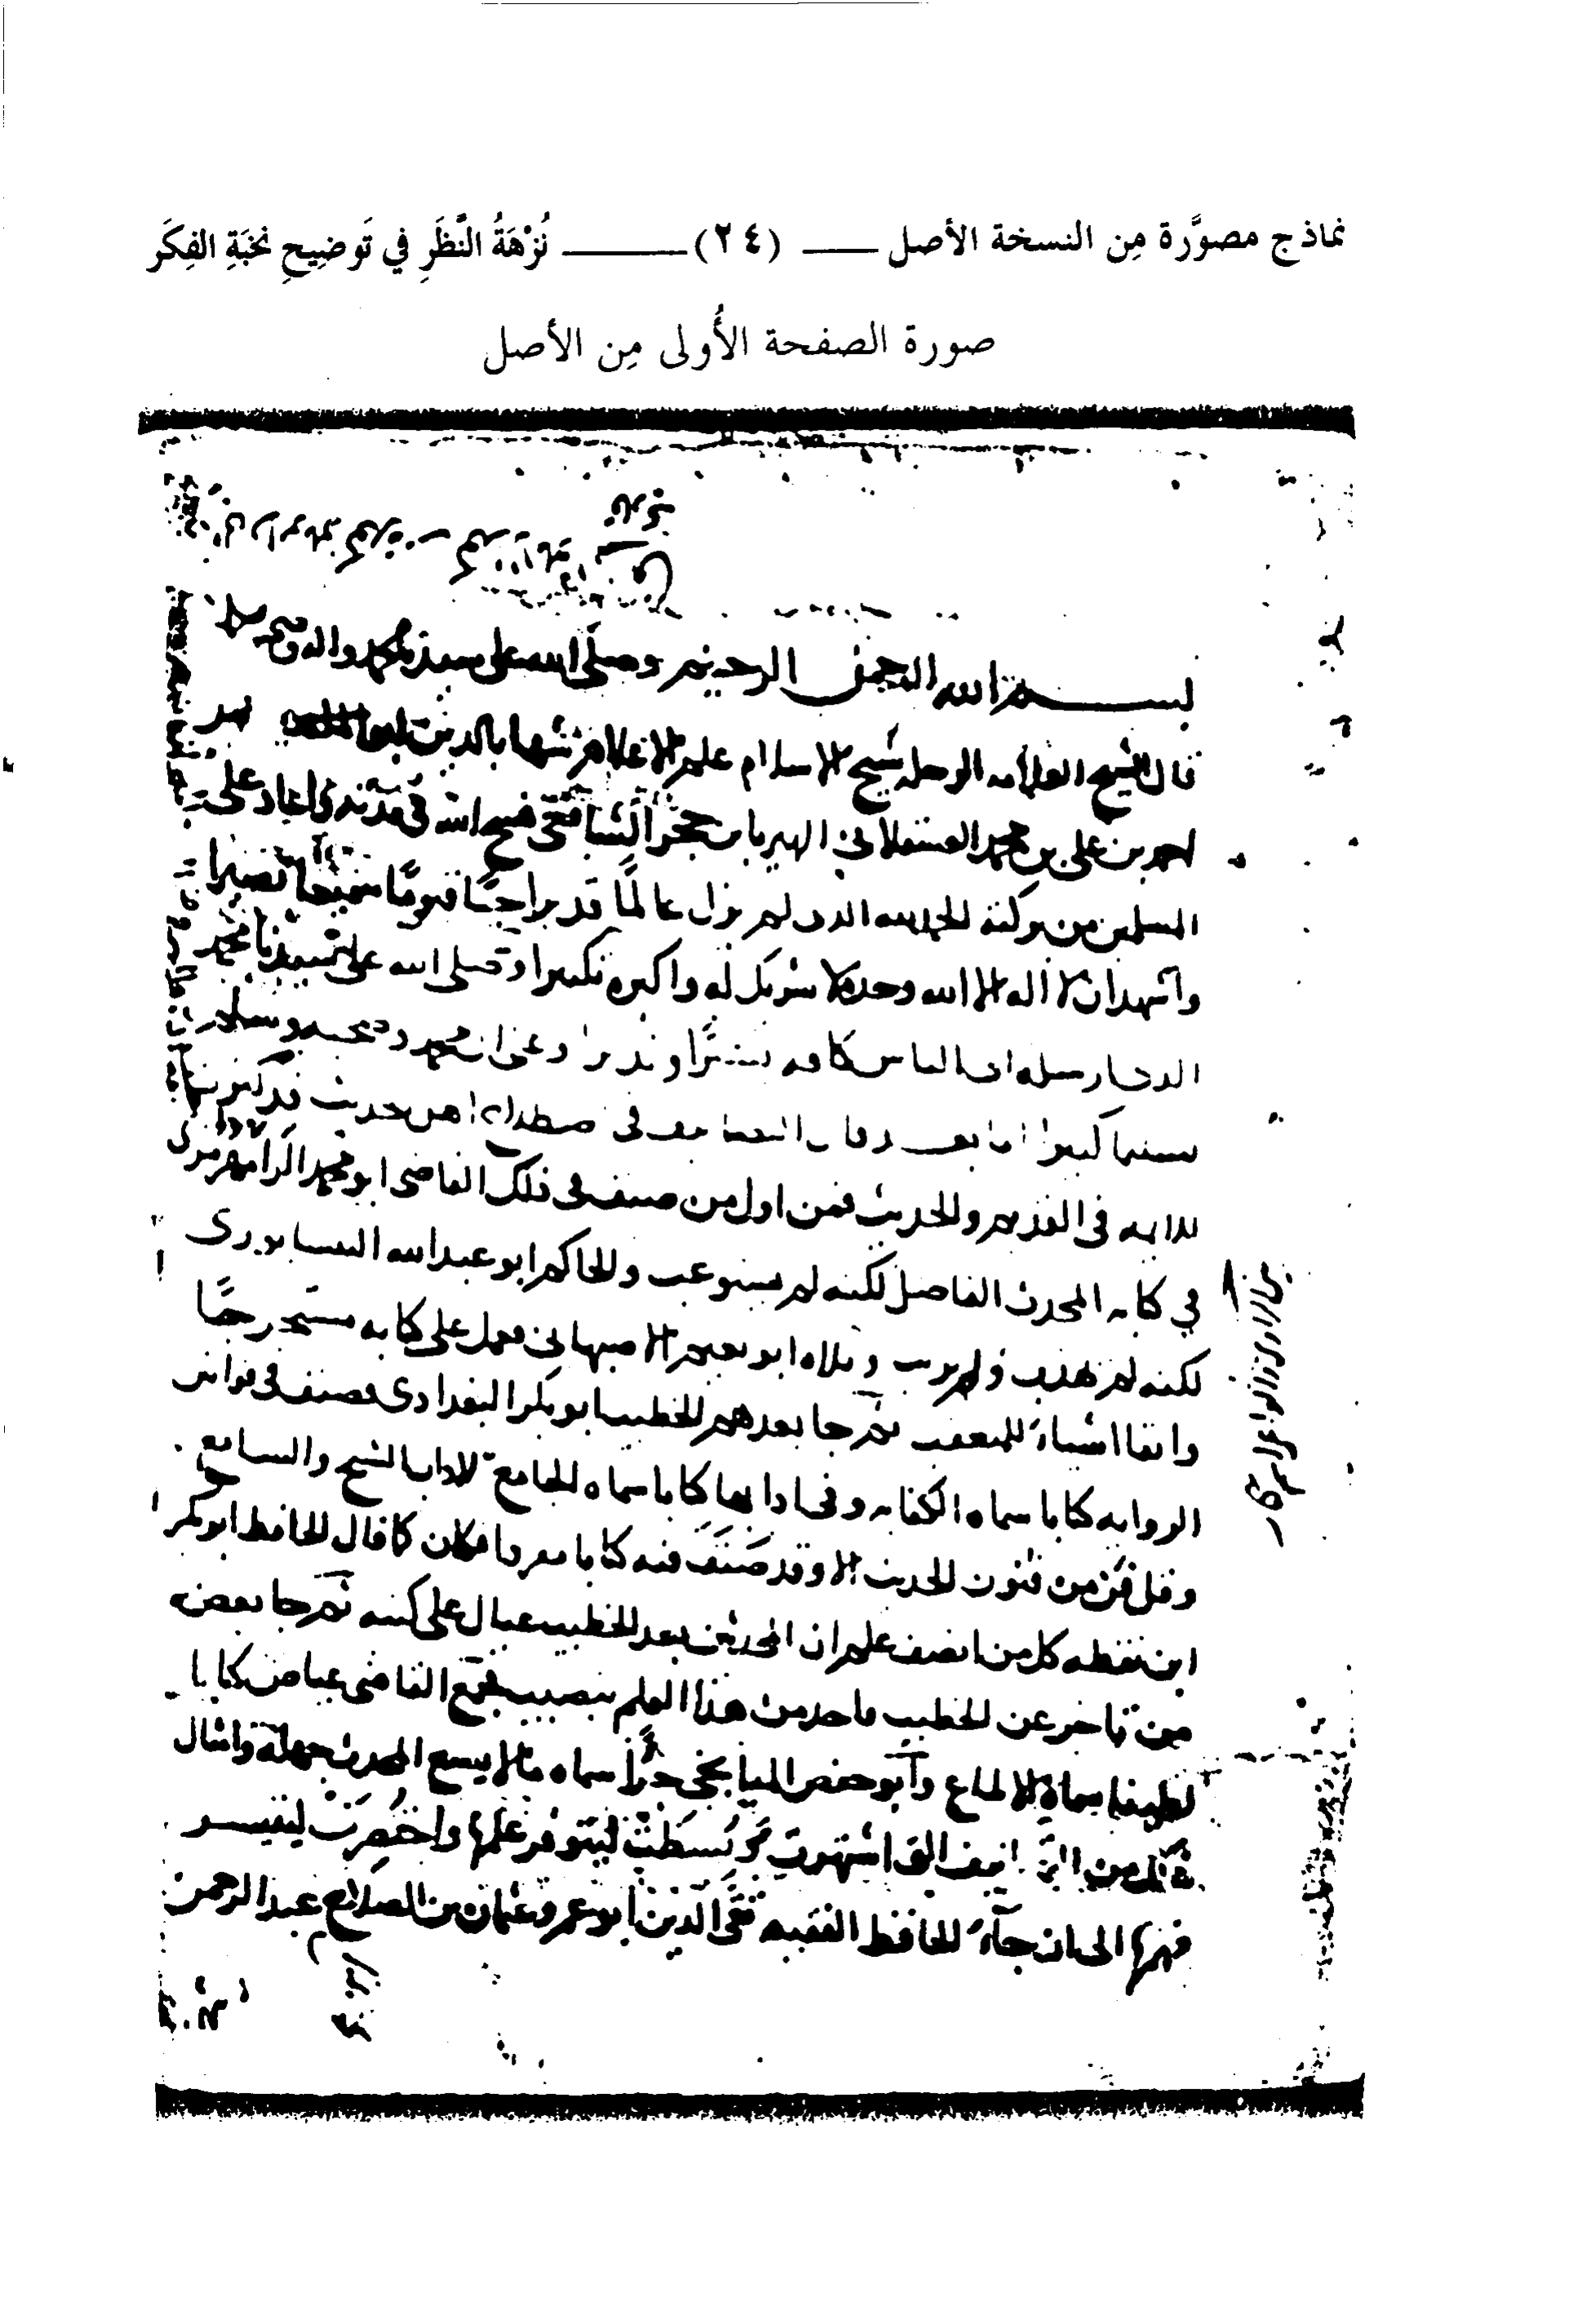 نماذج مصوَّرة مِن النسخة الأصل —— (٢٤) ——— نُزْهَةُ النَّظَرِ في تَوضِيحِ نُخبَةِ الفِكَر
صورة الصفحة الأُولى مِن الأصل
بسم الله الرحمن الرحيم وصلى الله على سيدنا محمد واله وصحبه وسلم
قال الشيخ العلامه الرحله شيخ الاسلام علم الاعلام شهاب الدين
احمد بن علي بن محمد العسقلاني الشهير بابن حجر الشافعي فسح الله في مدته واعاد على
المسلمين من بركته الحمد لله الذي لم يزل عالمًا قديرا حيًا قيومًا سميعا بصيرا
واشهد ان لا اله الا الله وحده لا شريك له واكبره تكبيرا وصلى الله على سيدنا محمد
الذي ارسله الى الناس كافه بشيرًا ونذيرا وعلى ال محمد وصحبه وسلم
تسليما كثيرا اما بعد فان التصانيف في اصطلاح اهل الحديث قد كثرت
للايمه في القديم والحديث فمن اول من صنف في ذلك القاضي ابو محمد الرامهرمزي
في كتابه المحدث الفاصل لكنه لم يستوعب والحاكم ابو عبد الله النيسابوري
لكنه لم يهذب ولم يرتب وتلاه ابو نعيم الاصبهاني فعمل على كتابه مستخرجًا
وابقا اشياء للمتعقب ثم جا بعدهم الخطيب ابو بكر البغدادي فصنف في قوانين
الروايه كتابا سماه الكفايه وفي ادابها كتابا سماه الجامع لاداب الشيخ والسامع
وقل فن من فنون الحديث الا وقد صنف فيه كتابا مفردا فكان كما قال الحافظ ابو بكر
ابن نقطه كل من انصف علم ان المحدثين بعد الخطيب عيال على كتبه ثم جا بعض
من تاخر عن الخطيب فاخذ من هذا العلم بنصيب فجمع القاضي عياض كتابا
لطيفا سماه الالماع وابو حفص الميانجي جزأ سماه ما لا يسع المحدث جهله وامثال
ذلك من التصانيف التي اشتهرت وبسطت ليتوفر علمها واختصرت ليتيسر
فهمها الى ان جآء الحافظ الفقيه تقي الدين ابو عمرو عثمان بن الصلاح عبد الرحمن